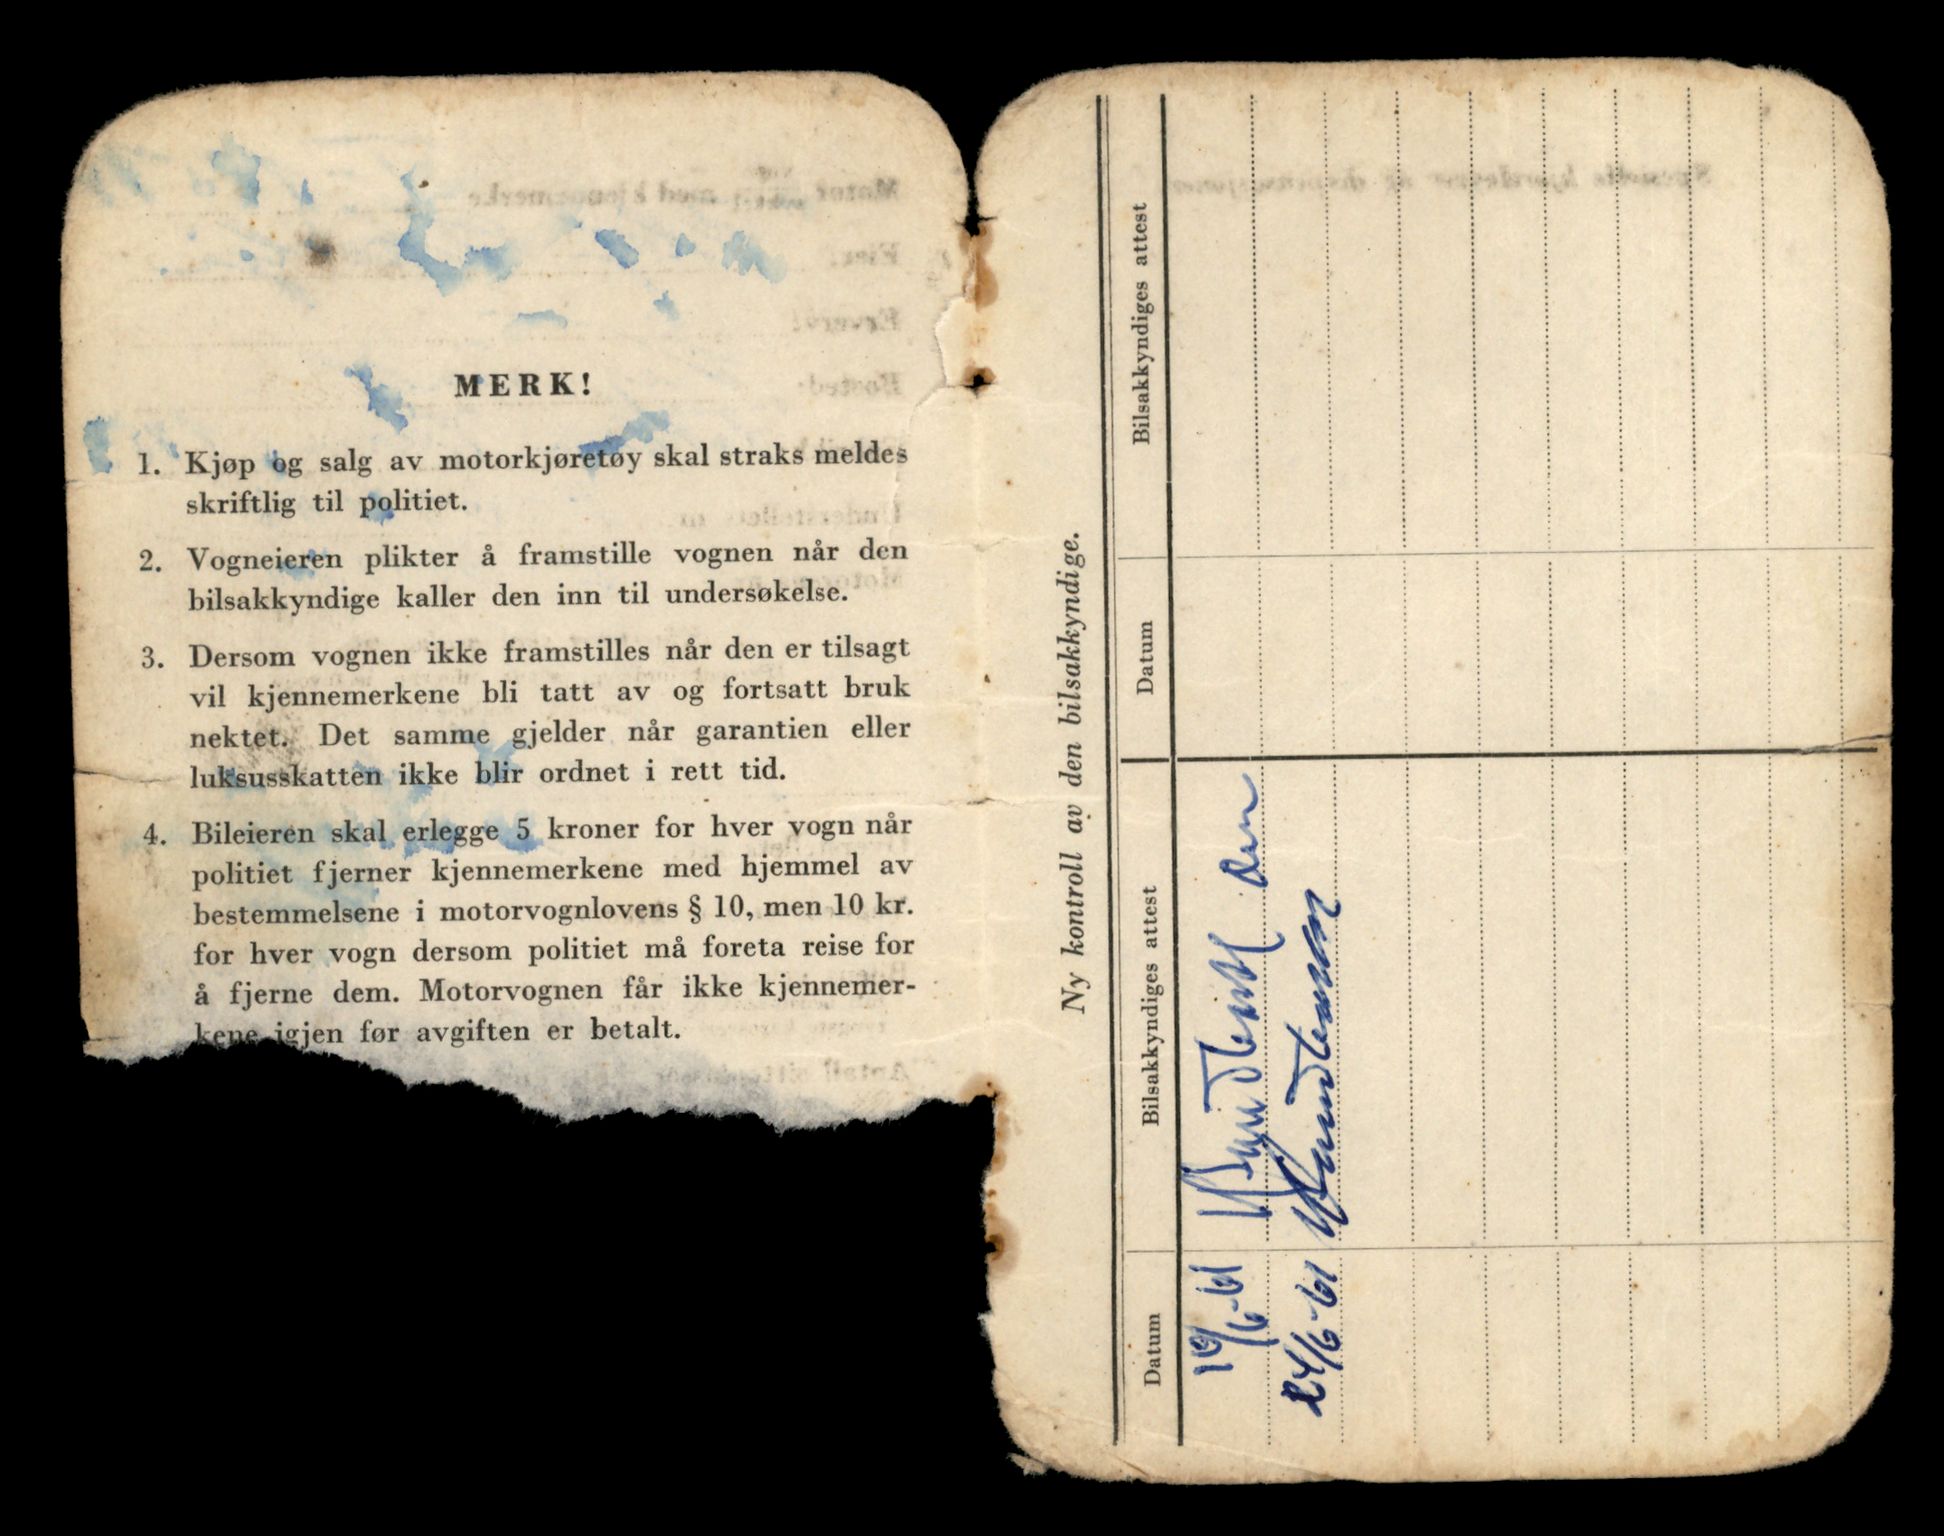 MERK!
1. Kjøp og salg av motorkjøretøy skal straks meldes
skriftlig til politiet.
2. Vogneieren plikter å framstille vognen når den
bilsakkyndige kaller den inn til undersøkelse.
3. Dersom vognen ikke framstilles når den er tilsagt
vil kjennemerkene bli tatt av og fortsatt bruk
nektet. Det samme gjelder når garantien eller
luksusskatten ikke blir ordnet i rett tid.
4. Bileieren skal erlegge 5 kroner for hver vogn når
politiet fjerner kjennemerkene med hjemmel av
bestemmelsene i motorvognlovens § 10, men 10 kr.
for hver vogn dersom politiet må foreta reise for
å fjerne dem. Motorvognen får ikke kjennemer-
kene igjen før avgiften er betalt.
Ny kontroll av den bilsakkyndige.
Datum Bilsakkyndiges attest Datum Bilsakkyndiges attest
19/6-61
24/6-61